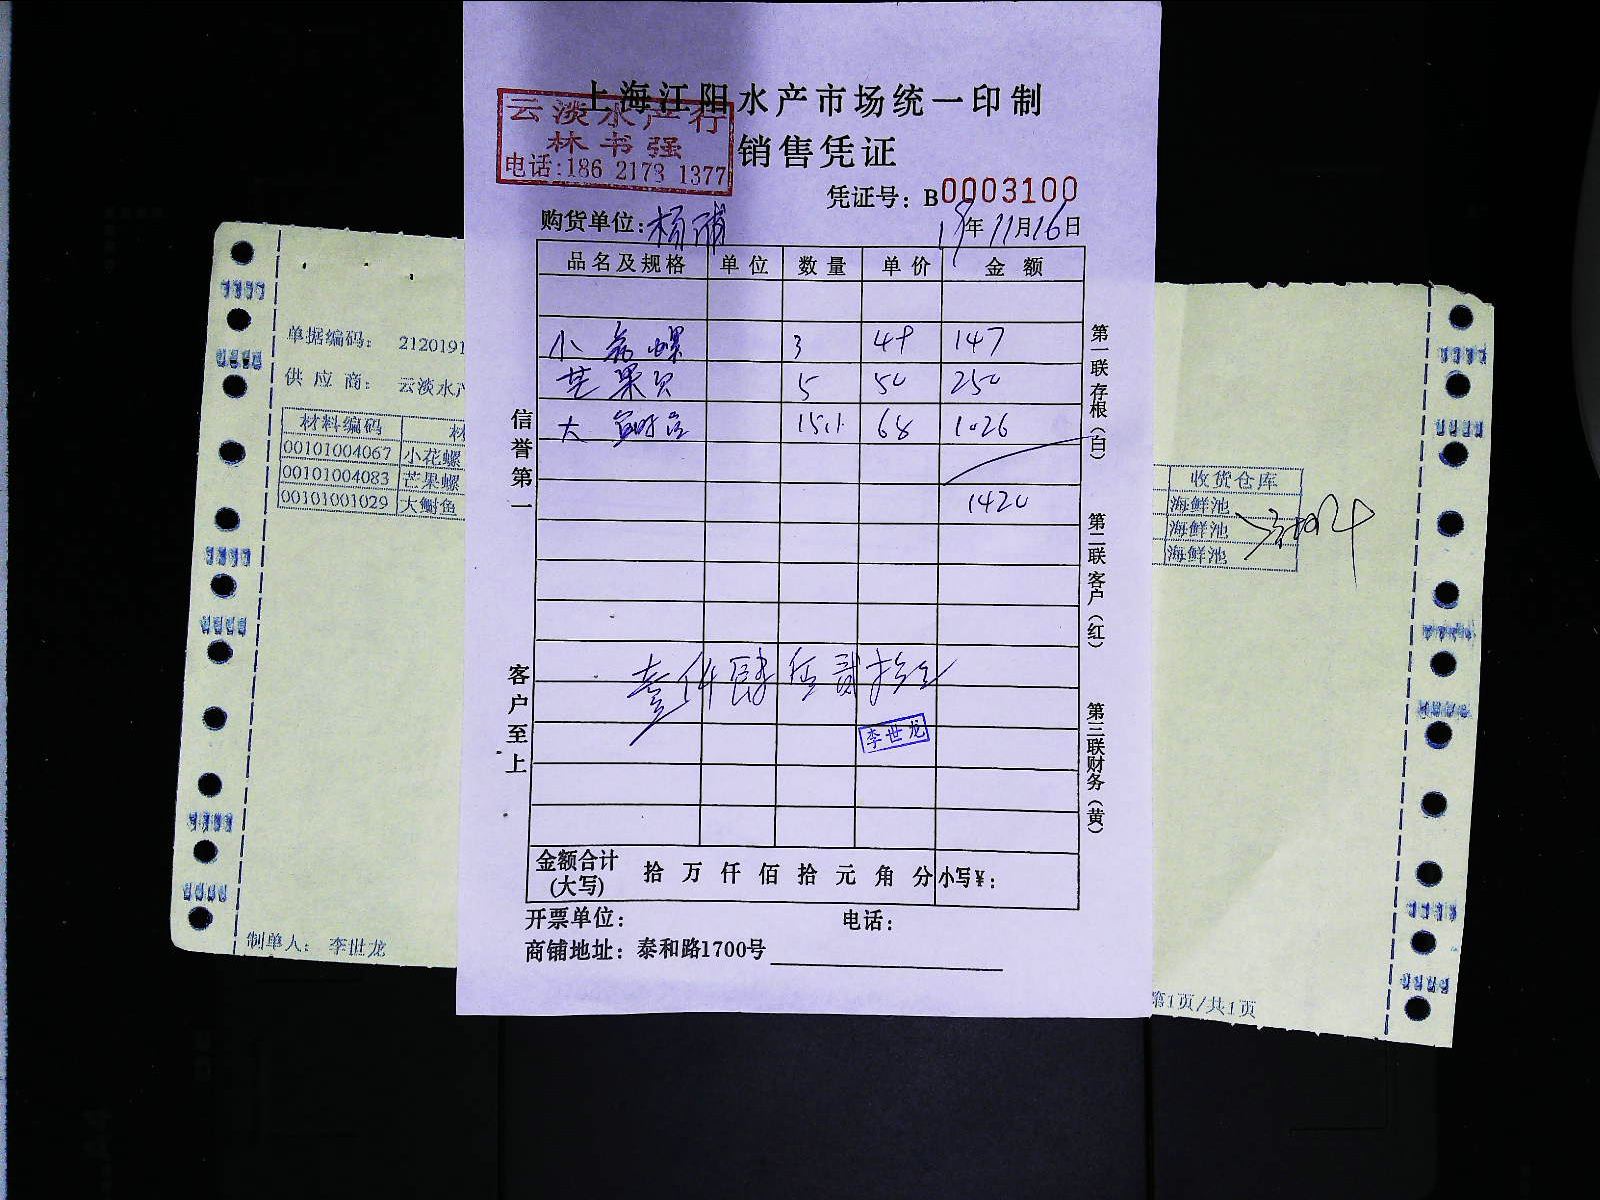 上海江阳水产市场统一印制
云淡水产行
林书强
电话:186 2173 1377
销售凭证
凭证号：B0003100
购货单位:杨浦
19年11月16日
品名及规格 单位 数量 单价 金额
小 螺 3 49 147
芒果贝 5 50 250
大 15.1 68 1026
1420
壹仟肆佰贰拾元
李世龙
金额合计(大写) 拾 万 仟 佰 拾 元 角 分 小写¥：
开票单位： 电话：
商铺地址：泰和路1700号
信誉第一
客户至上
第一联存根（白）
第二联客户（红）
第三联财务（黄）
单据编码： 2120191
供应商： 云淡水产
材料编码 材
00101004067 小花螺
00101004083 芒果螺
00101001029 大鲥鱼
制单人： 李世龙
收货仓库
海鲜池
海鲜池
海鲜池
第1页/共1页